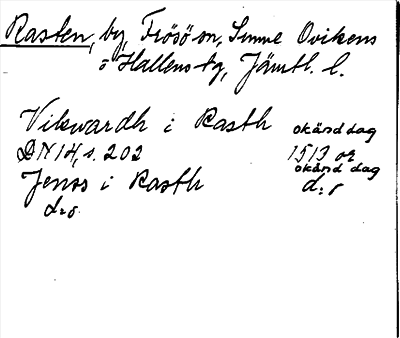 Rasten, by, Frösö sn, Sunne Ovikens
o Hallens tg, Jämtl. l.
Vikwardh i Rasth okänd dag
DN 14, s. 202 1513 or
Jenss i Rasth okänd dag
d:o d:o